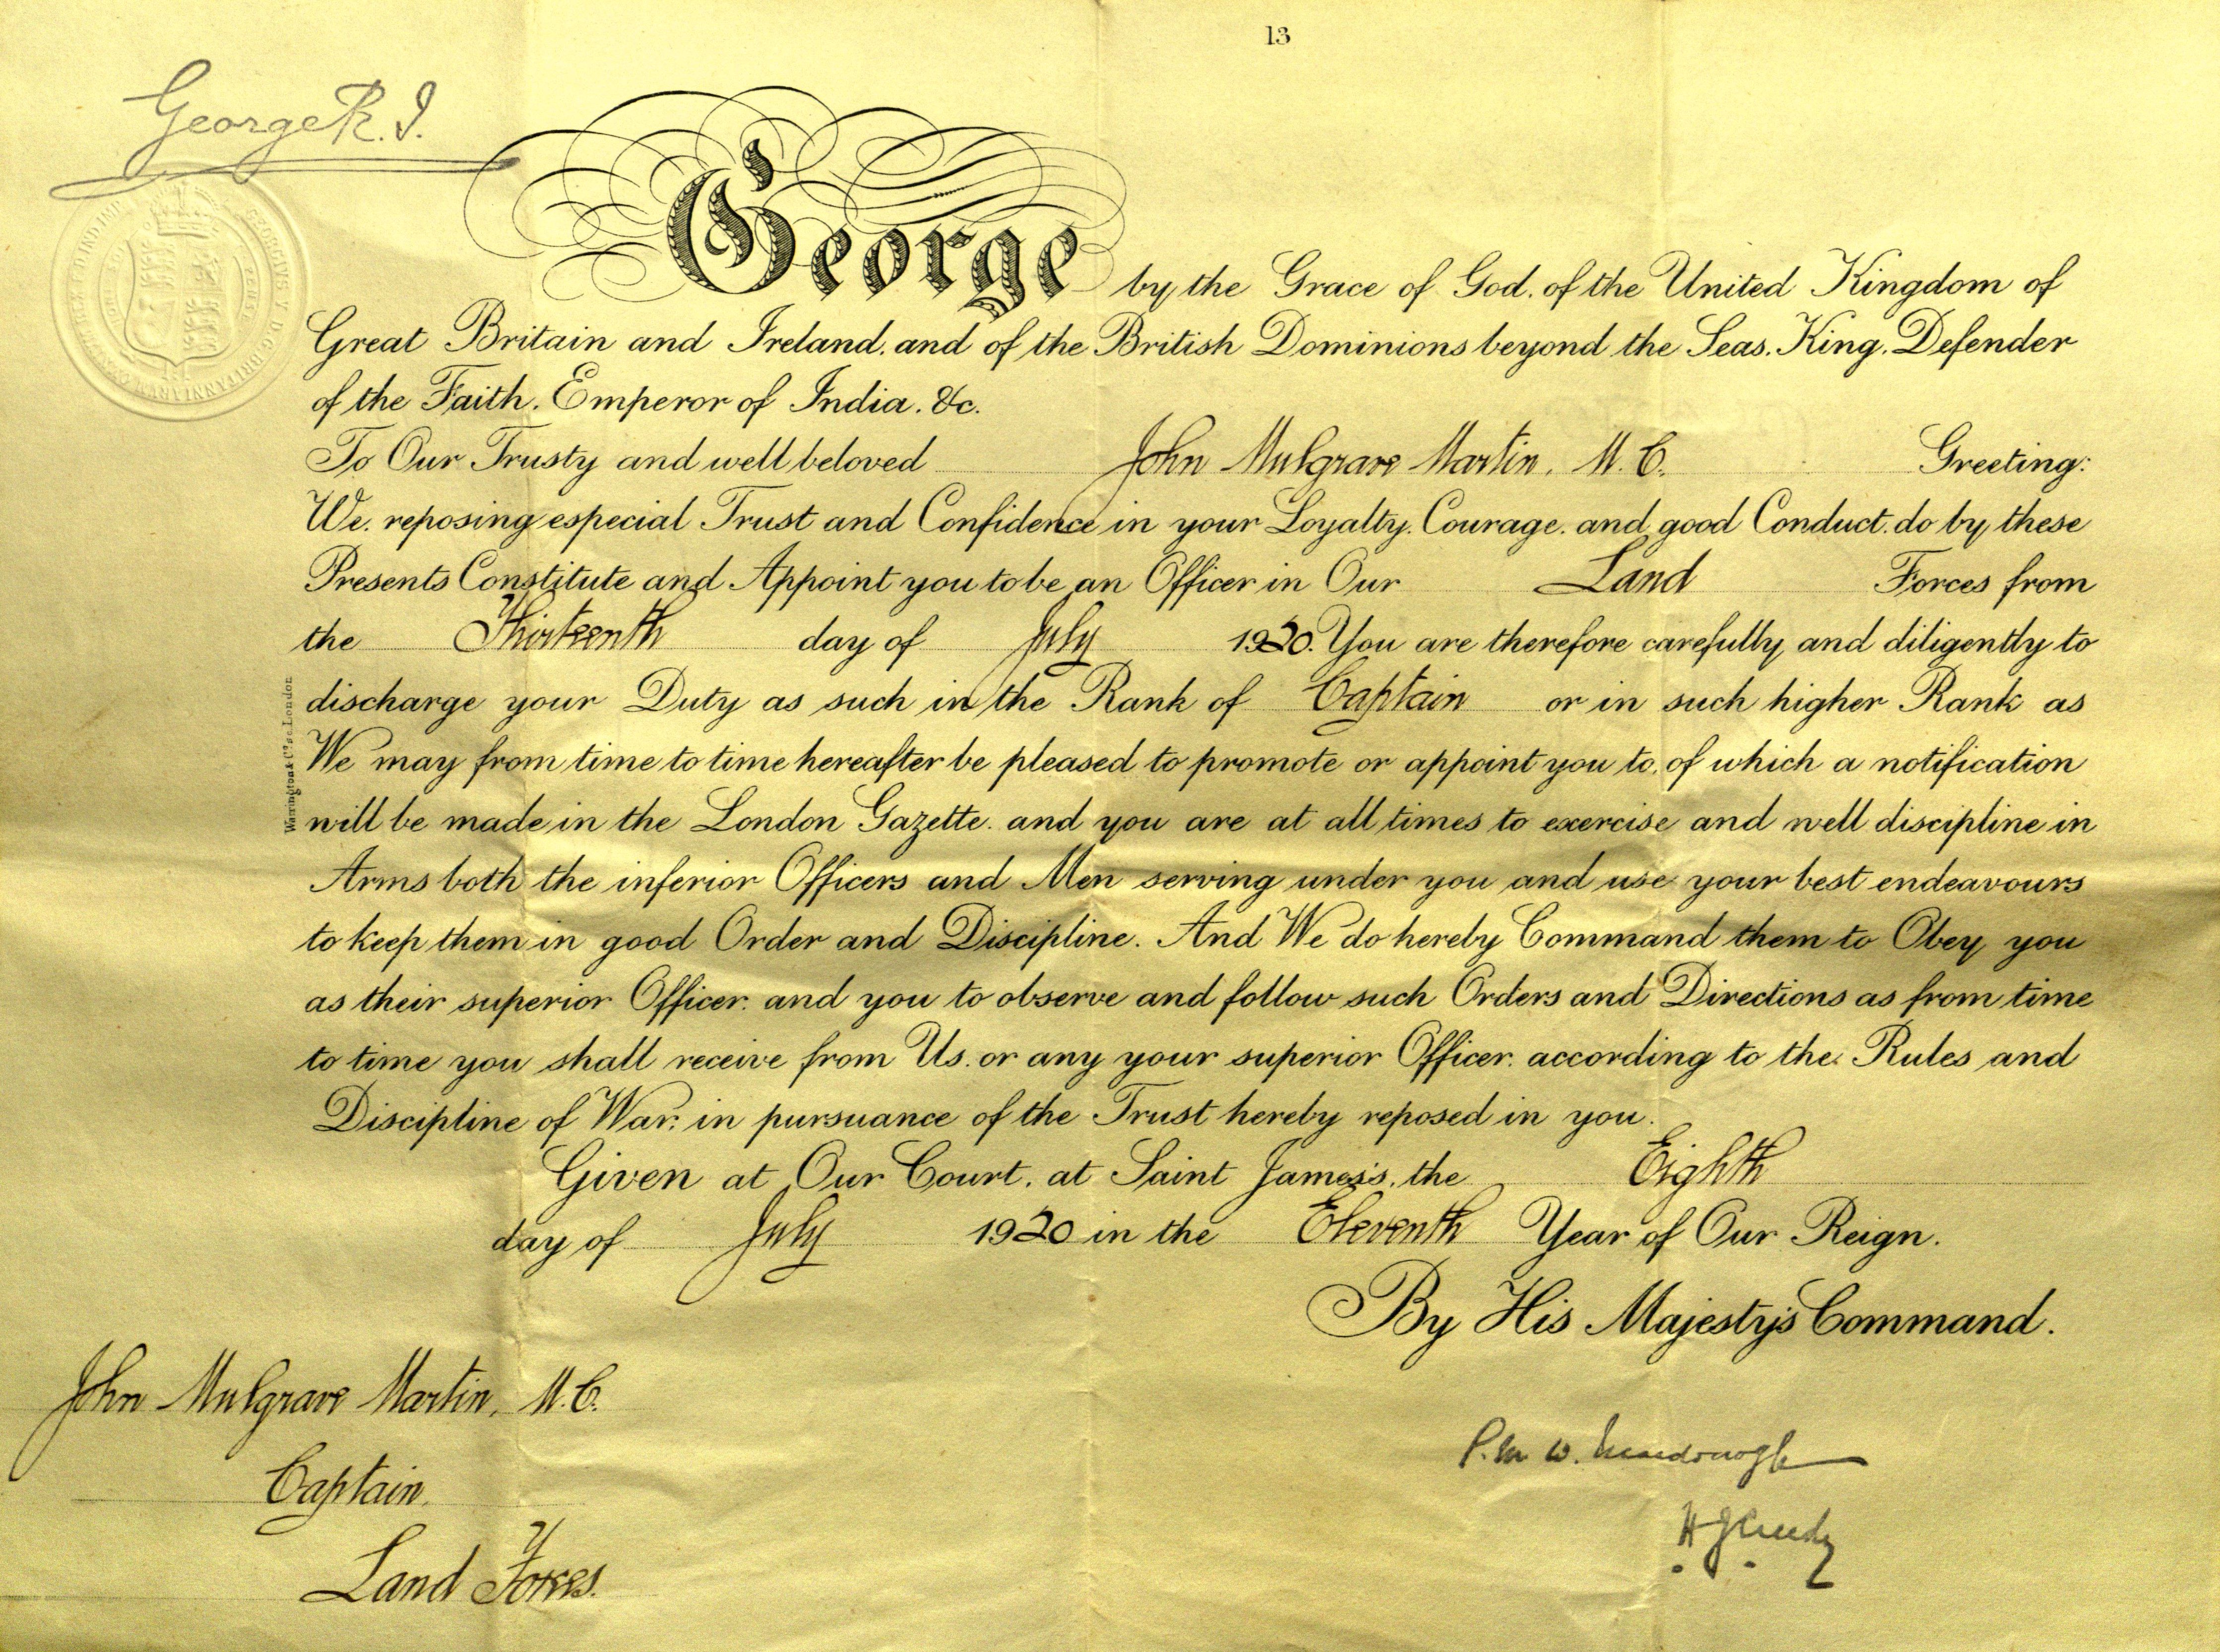 13
George R.I.
George by the Grace of God, of the United Kingdom of
Great Britain and Ireland, and of the British Dominions beyond the Seas, King, Defender
of the Faith, Emperor of India, &c.
To Our Trusty and well beloved John Mulgrave Martin, M.C. Greeting:
We, reposing especial Trust and Confidence in your Loyalty, Courage, and good Conduct, do by these
Presents Constitute and Appoint you to be an Officer in Our Land Forces from
the Thirteenth day of July 1920. You are therefore carefully and diligently to
discharge your Duty as such in the Rank of Captain or in such higher Rank as
We may from time to time hereafter be pleased to promote or appoint you to, of which a notification
will be made in the London Gazette, and you are at all times to exercise and well discipline in
Arms both the inferior Officers and Men serving under you and use your best endeavours
to keep them in good Order and Discipline. And We do hereby Command them to Obey you
as their superior Officer, and you to observe and follow such Orders and Directions as from time
to time you shall receive from Us, or any your superior Officer, according to the Rules and
Discipline of War, in pursuance of the Trust hereby reposed in you.
Given at Our Court, at Saint James's, the Eighth
day of July 1920 in the Eleventh Year of Our Reign.
By His Majesty's Command.
John Mulgrave Martin, M.C.
Captain.
Land Forces.
Warrington & Co. London